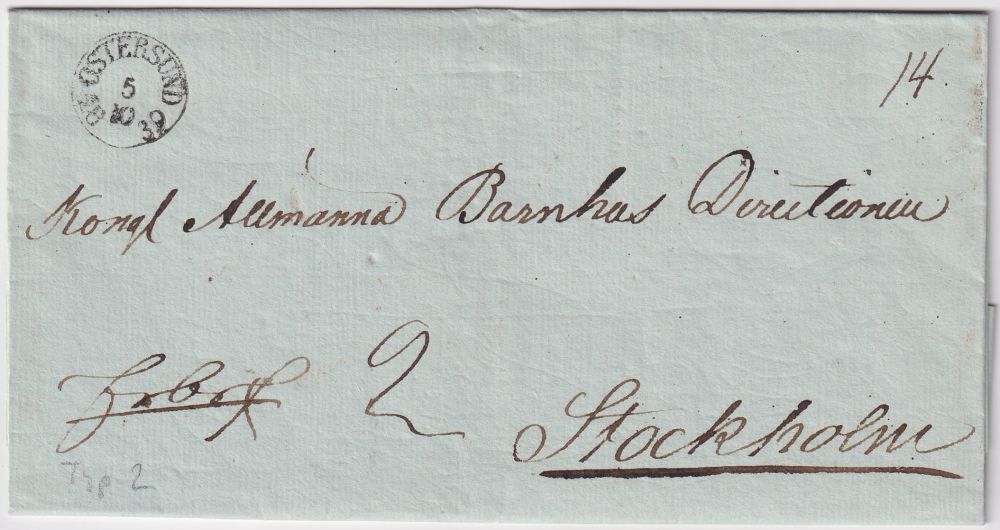 ÖSTERSUND
5
10
39
14
Kongl Allmänna Barnhus Directionen
frbrf 2
Stockholm
Typ 2